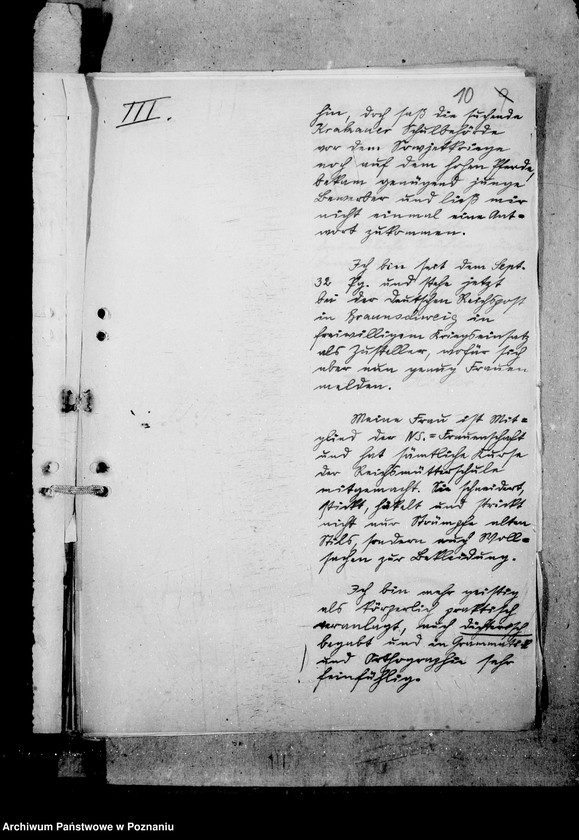 III.
10
hin, doch saß die suchende
Krakauer Schulbehörde
vor dem Sowjetkriege
noch auf dem hohen Pferde,
bekam genügend junge
Bewerber und ließ mir
nicht einmal eine Ant=
wort zukommen.
Ich bin seit dem Sept.
32 Pg. und stehe jetzt
bei der Deutschen Reichspost
in Braunschweig in
freiwilligem Kriegseinsatz
als Zusteller, wofür sich
aber nun genug Frauen
melden.
Meine Frau ist Mit=
glied der NS.=Frauenschaft
und hat sämtliche Kurse
der Reichsmütterschule
mitgemacht. Sie schneidert,
stickt, häkelt und strickt
nicht nur Strümpfe alten
Stils, sondern auch Woll=
sachen zur Bekleidung.
Ich bin mehr geistig
als körperlich praktisch
veranlagt, auch dichterisch
begabt und in Grammatik
und Orthographie sehr
feinfühlig.
Archiwum Państwowe w Poznaniu